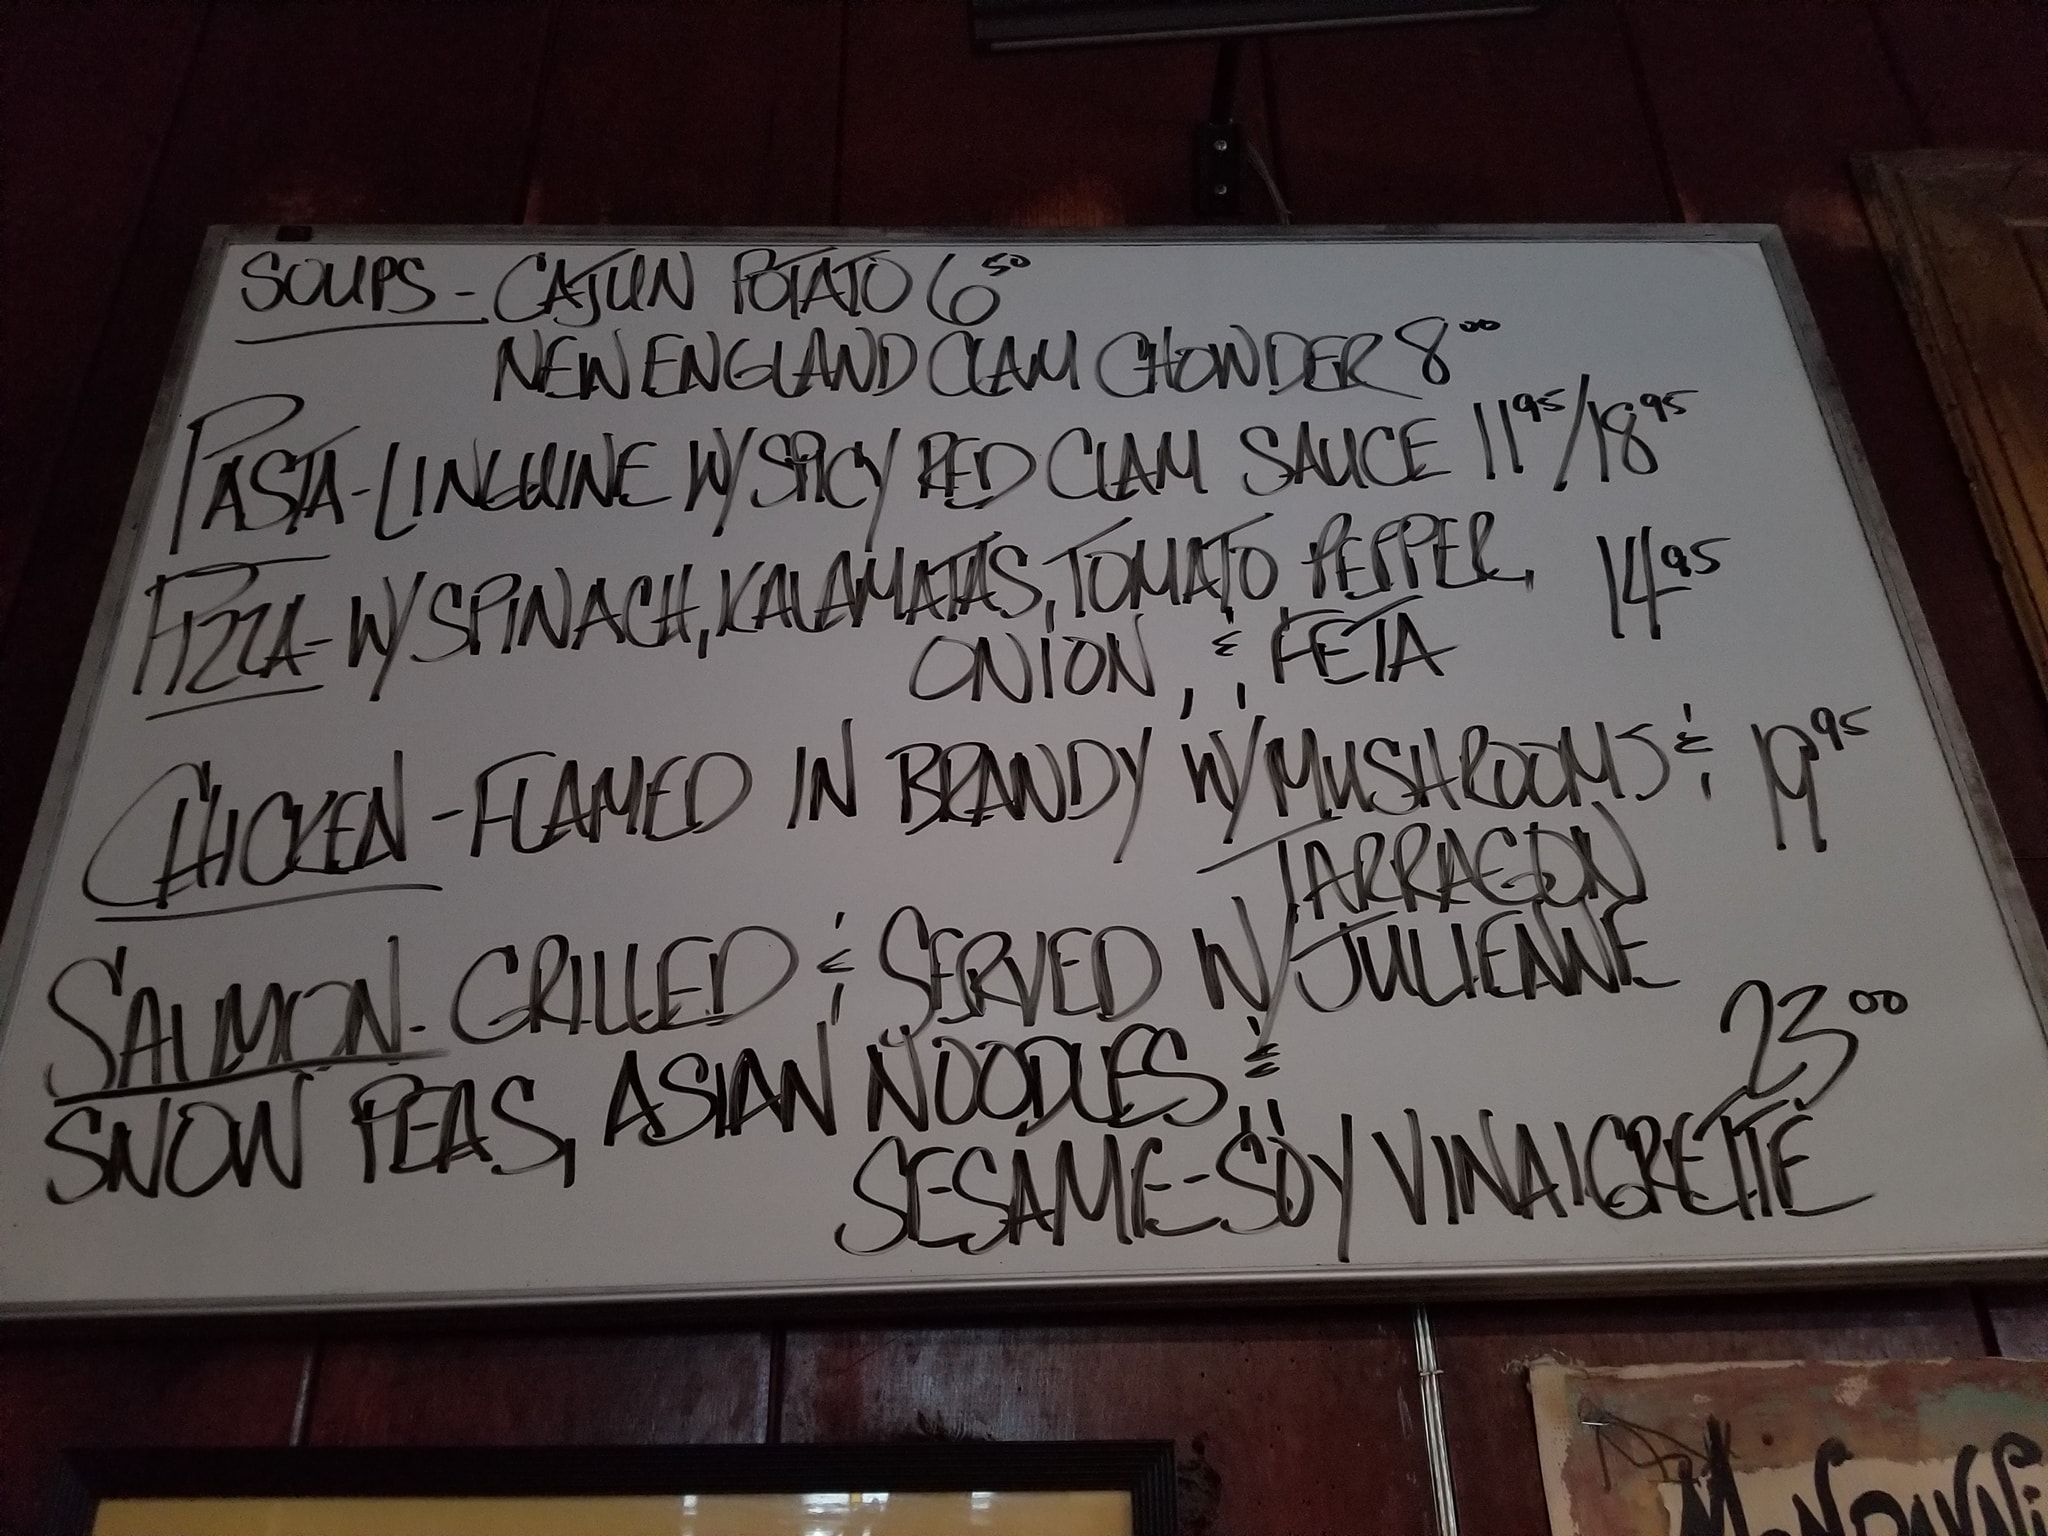 SOUPS - CAJUN POTATO 6 50
NEW ENGLAND CLAM CHOWDER 8 00
PASTA - LINGUINE W/ SPICY RED CLAM SAUCE 11 95 / 18 95
PIZZA - W/ SPINACH, KALAMATAS, TOMATO PEPPER, 14 95
ONION, & FETA
CHICKEN - FLAMED IN BRANDY W/ MUSHROOMS & 19 95
TARRAGON
SALMON - GRILLED & SERVED W/ JULIENNE
SNOW PEAS, ASIAN NOODLES & 23 00
SESAME-SOY VINAIGRETTE